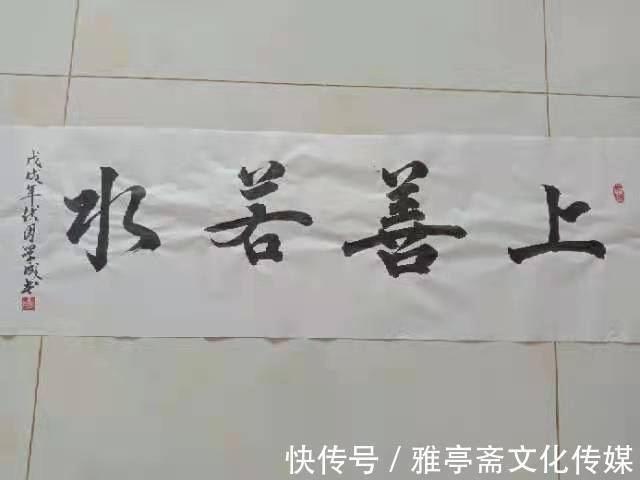 上善若水
戊戌年
学成书
快传号 / 雅亭斋文化传媒